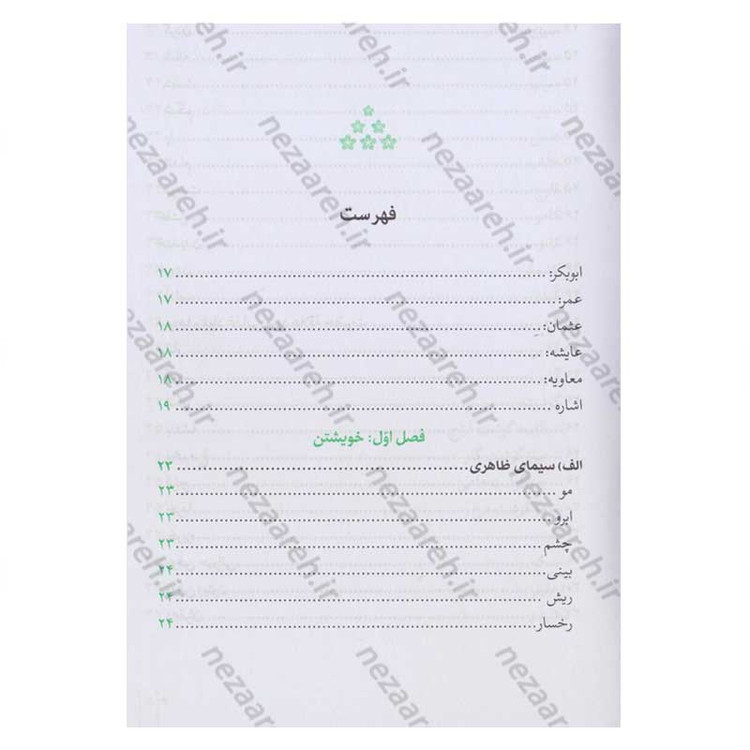 فهرست
ابوبکر: ۱۷
عمر: ۱۷
عثمان: ۱۸
عایشه: ۱۸
معاویه: ۱۸
اشاره ۱۹
فصل اوّل: خویشتن
الف) سیمای ظاهری ۲۳
مو ۲۳
ابرو ۲۳
چشم ۲۳
بینی ۲۴
ریش ۲۴
رخسار ۲۴
nezaareh.ir